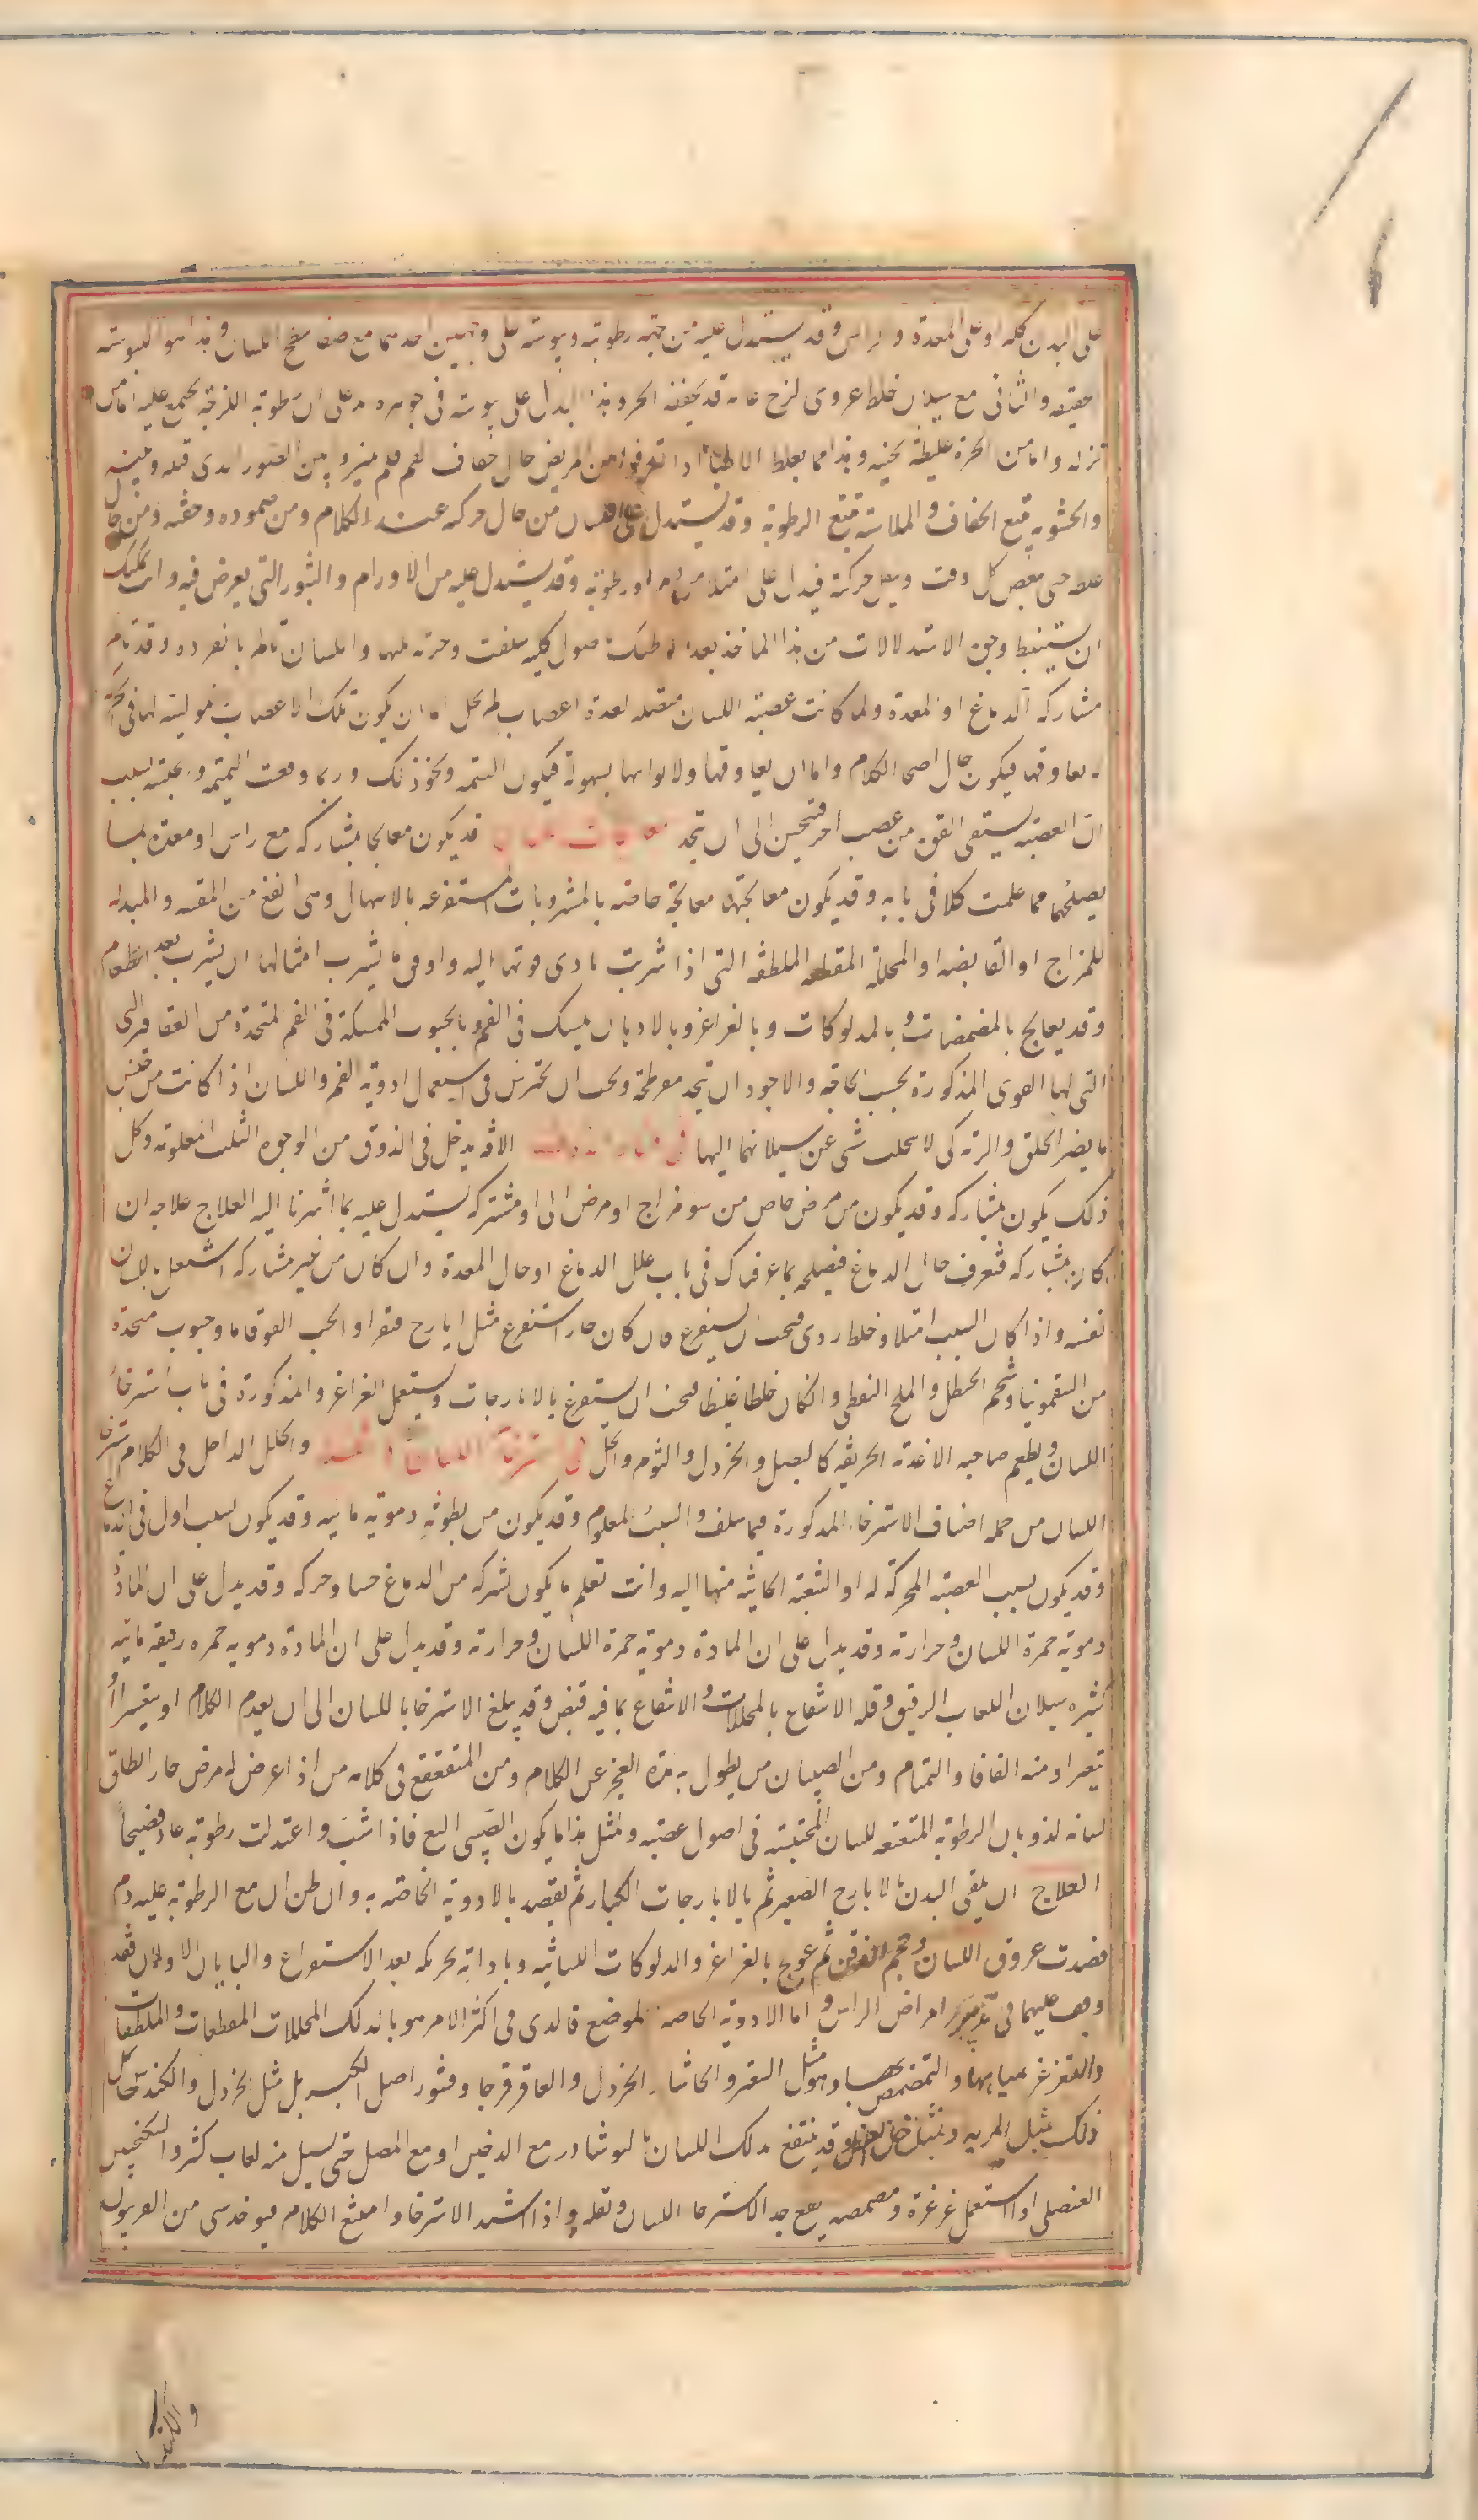 على البدن كله او على المعدة والراس وقد يستدل عليه من جهة رطوبته ويبوسته على وجهين احدهما مع صفا سطح اللسان وهذا هو اليبوسة
حقيقه والثانى مع سيلان خلط غروى لزج قد يجففه الحر وهذا لا يدل على يبوسة فى جوهره بل على ان رطوبة اللزجة تجتمع عليه اما من
نزله واما من ابخرة غليظة ثخينه وهذا مما يغلط الاطباء اذا تعرفوا من المريض حال جفاف الفم فلم يميزوا بين
والخشونه تتبع الجفاف والملاسة تتبع الرطوبة وقد يستدل على اللسان من حال حركته عند الكلام ومن ضموره وخفته ومن حال
غلظه حتى يعض كل وقت ويثقل حركته فيدل على امتلا من دم او رطوبة وقد يستدل عليه من الاورام والبثور التى يعرض فيه وانت يمكنك
ان يستنبط وجوه الاستدلالات من هذا الماخذ بعد احاطتك باصول كليه سلفت وجزئه واللسان تالم بانفراده وقد تالم
مشاركه الدماغ او المعدة ولما كانت عصبة اللسان متصله لعدة اعصاب لم يخل اما ان يكون تلك الاعصاب مواتية لها فى الحركة
لا يعاوقها فيكون حال اصح الكلام واما ان يعاوقها ولا يواتيها بسهولة فيكون التمتمه ونحو ذلك وربما وقعت التمتمه والحبسه بسبب
ان العصبه يستقى القوة من عصب اخر فتحبس الى ان تجد معالجات اللسان قد يكون معالجا بمشاركه مع راس او معدة بما
يصلحهما مما علمت كلا فى بابه وقد يكون معالجتها معالجة خاصه بالمشروبات المستفرغه بالاسهال وهى انفع من المقيه والمبدله
للمزاج او القابضه او المحللة المقطعه الملطفه التى اذا شربت تادى قوتها اليه واوفق ما يشرب امثالها ان يشرب بعد الطعام
وقد يعالج بالمضمضات وبالمدلوكات وبالغراغر وبالادهان يمسك فى الفم وبالحبوب الممسكة فى الفم المتخذة من العقاقير التى
التى لها القوى المذكورة بحسب الحاجه والاجود ان يتخذ مفرطحة ويجب ان يحترس فى استعمال ادوية الفم واللسان اذا كانت من جنس
ما يضر الحلق والرئه كى لا يتحلب شى عن سيلانها اليها فى فساد الذوق الافه يدخل فى الذوق من الوجوه الثلث المعلومه وكل
ذلك يكون بمشاركه وقد يكون من مرض خاص من سو مزاج او مرض الى او مشتركه يستدل عليه بما اشرنا اليه العلاج علاجه ان
كان بمشاركه فتعرف حال الدماغ فيصلحه بما عرفك فى باب علل الدماغ او حال المعدة وان كان من غير مشاركه اشتغل باللسان
نفسه واذا كان السبب امتلا وخلطا ردى فيجب ان يستفرغ فان كان حارا استفرغ مثل ايارج فيقرا والحب القوقايا وحبوب متخذة
من السقمونيا وشحم الحنظل والملح النفطى وان كان خلطا غليظا فيجب ان يستفرغ بالايارجات ويستعمل الغراغر والمذكورة فى باب استرخاء
اللسان ويطعم صاحبه الاغذية الحريفه كالبصل والخردل والثوم والخل فى استرخآ اللسان وثقله والخلل الداخل فى الكلام استرخا
اللسان من جمله اصناف الاسترخاء المذكورة فيما سلف والسبب المعلوم وقد يكون من رطوبة دموية مائيه وقد يكون لسبب اول فى الدماغ
وقد يكون بسبب العصبة المحركة له او الشعبة الجائية منها اليه وانت تعلم ما يكون بشركه من الدماغ حسا وحركه وقد يدل على ان المادة
دموية حمرة اللسان وحرارته وقد يدل على ان المادة دموية حمرة اللسان وحرارته وقد يدل على ان المادة دمويه حمره رقيقه مائيه
كثيره سيلان اللعاب الرقيق وقله الانتفاع بالمحللات والانتفاع بما فيه قبض وقد يبلغ الاسترخا باللسان الى ان يعدم الكلام او يتغير او
يتعسر او منه الفافا والتمتام ومن الصبيان من يطول به مدة العجز عن الكلام ومن المتقعقع فى كلامه من اذا عرض له مرض حار انطلق
لسانه لذوبان الرطوبة المتعتعه للسان المحتبسة فى اصول عصبه ولمثل هذا ما يكون الصبى الثغ فاذا شب واعتدلت رطوبته عاد فصيحا
العلاج ان ينقى البدن بالايارج الصغير ثم بالايارجات الكبار ثم يقصد بالادوية الخاصه به وان ظن ان مع الرطوبة غلبة دم
فصدت عروق اللسان وحجم الذقن ثم عولج بالغراغر والدلوكات اللسانيه وبادامة تحريكه بعد الاستفراغ والبابان الاولان فقد
وقف عليهما فى تدبير امراض الراس واما الادوية الخاصه لموضع فالذى فى اكثر الامر هو بالدلك المحللات المقطعات والملطفات
والتغرغر بمياهها والتمضمض بها وهو مثل السعتر والحاشا والخردل والعاقرقرحا وقشور اصل الكبر بل مثل الخردل والكندس كل
ذلك بمثل المرى وبمثل خل العنصل وقد ينتفع بدلك اللسان بالنوشادر مع الرخبين او مع المصل حتى يسيل منه لعاب كثير والسكنجبين
العنصلى اذا استعمل غرغرة ومضمضه ينفع جدا لاسترخا اللسان وثقله واذا اشتد الاسترخا وامتنع الكلام فيوخذ شى من الفربيون
والكندر